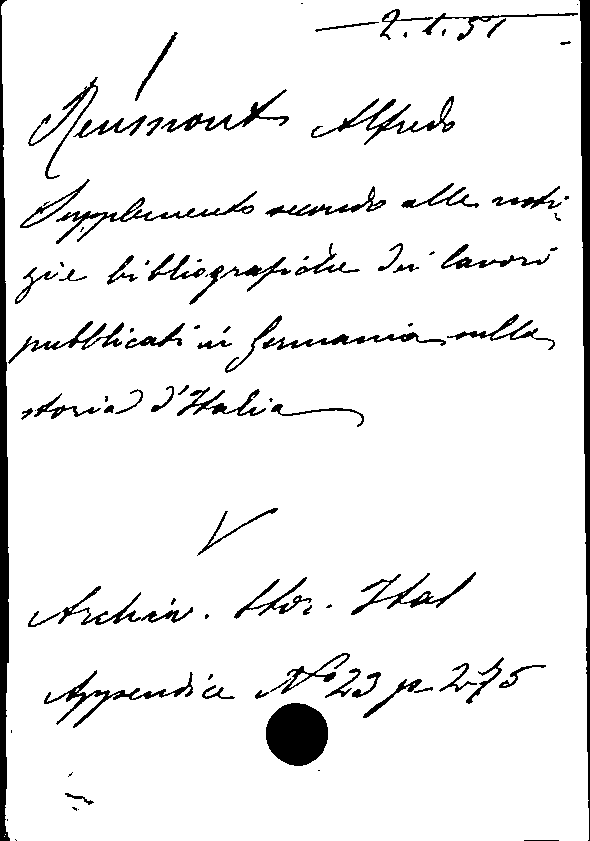 2.1.51
Reumont Alfredo
Supplemento secondo alle noti-
zie bibliografiche dei lavori
pubblicati in Germania sulla
storia d'Italia
V
Archiv. Stor. Ital
Appendice No 23 p. 275